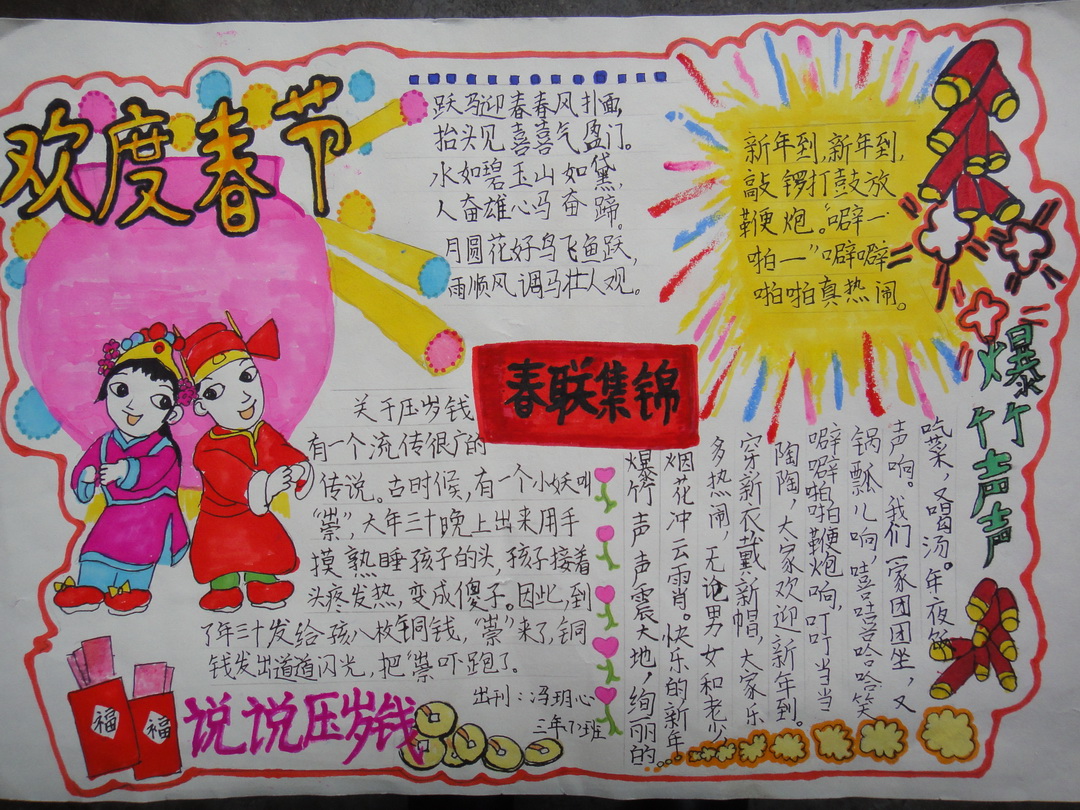 欢度春节
跃马迎春春风扑面,
抬头见喜喜气盈门。
水如碧玉山如黛,
人奋雄心马奋蹄。
月圆花好鸟飞鱼跃,
雨顺风调马壮人观。
新年到,新年到,
敲锣打鼓放
鞭炮。“噼一
啪一”噼噼
啪啪真热闹。
爆竹声声
春联集锦
关于压岁钱
有一个流传很广的
传说。古时候,有一个小妖叫
“祟”,大年三十晚上出来用手
摸熟睡孩子的头,孩子接着
头疼发热,变成傻子。因此,到
了年三十发给孩八枚年铜钱,“祟”来了,铜
钱发出道道闪光,把“祟吓跑了。
出刊:冯玥心
三年(7)班
说说压岁钱
福
福
爆竹声声震大地,绚丽的
烟花冲云霄。快乐的新年
多热闹,无论男女和老少
穿新衣戴新帽,大家乐
陶陶,大家欢迎新年到。
噼噼啪啪鞭炮响,叮叮当当
锅瓢儿响,嘻嘻哈哈哈笑
声响。我们一家团团坐,又
吃菜,又喝汤。年夜饭